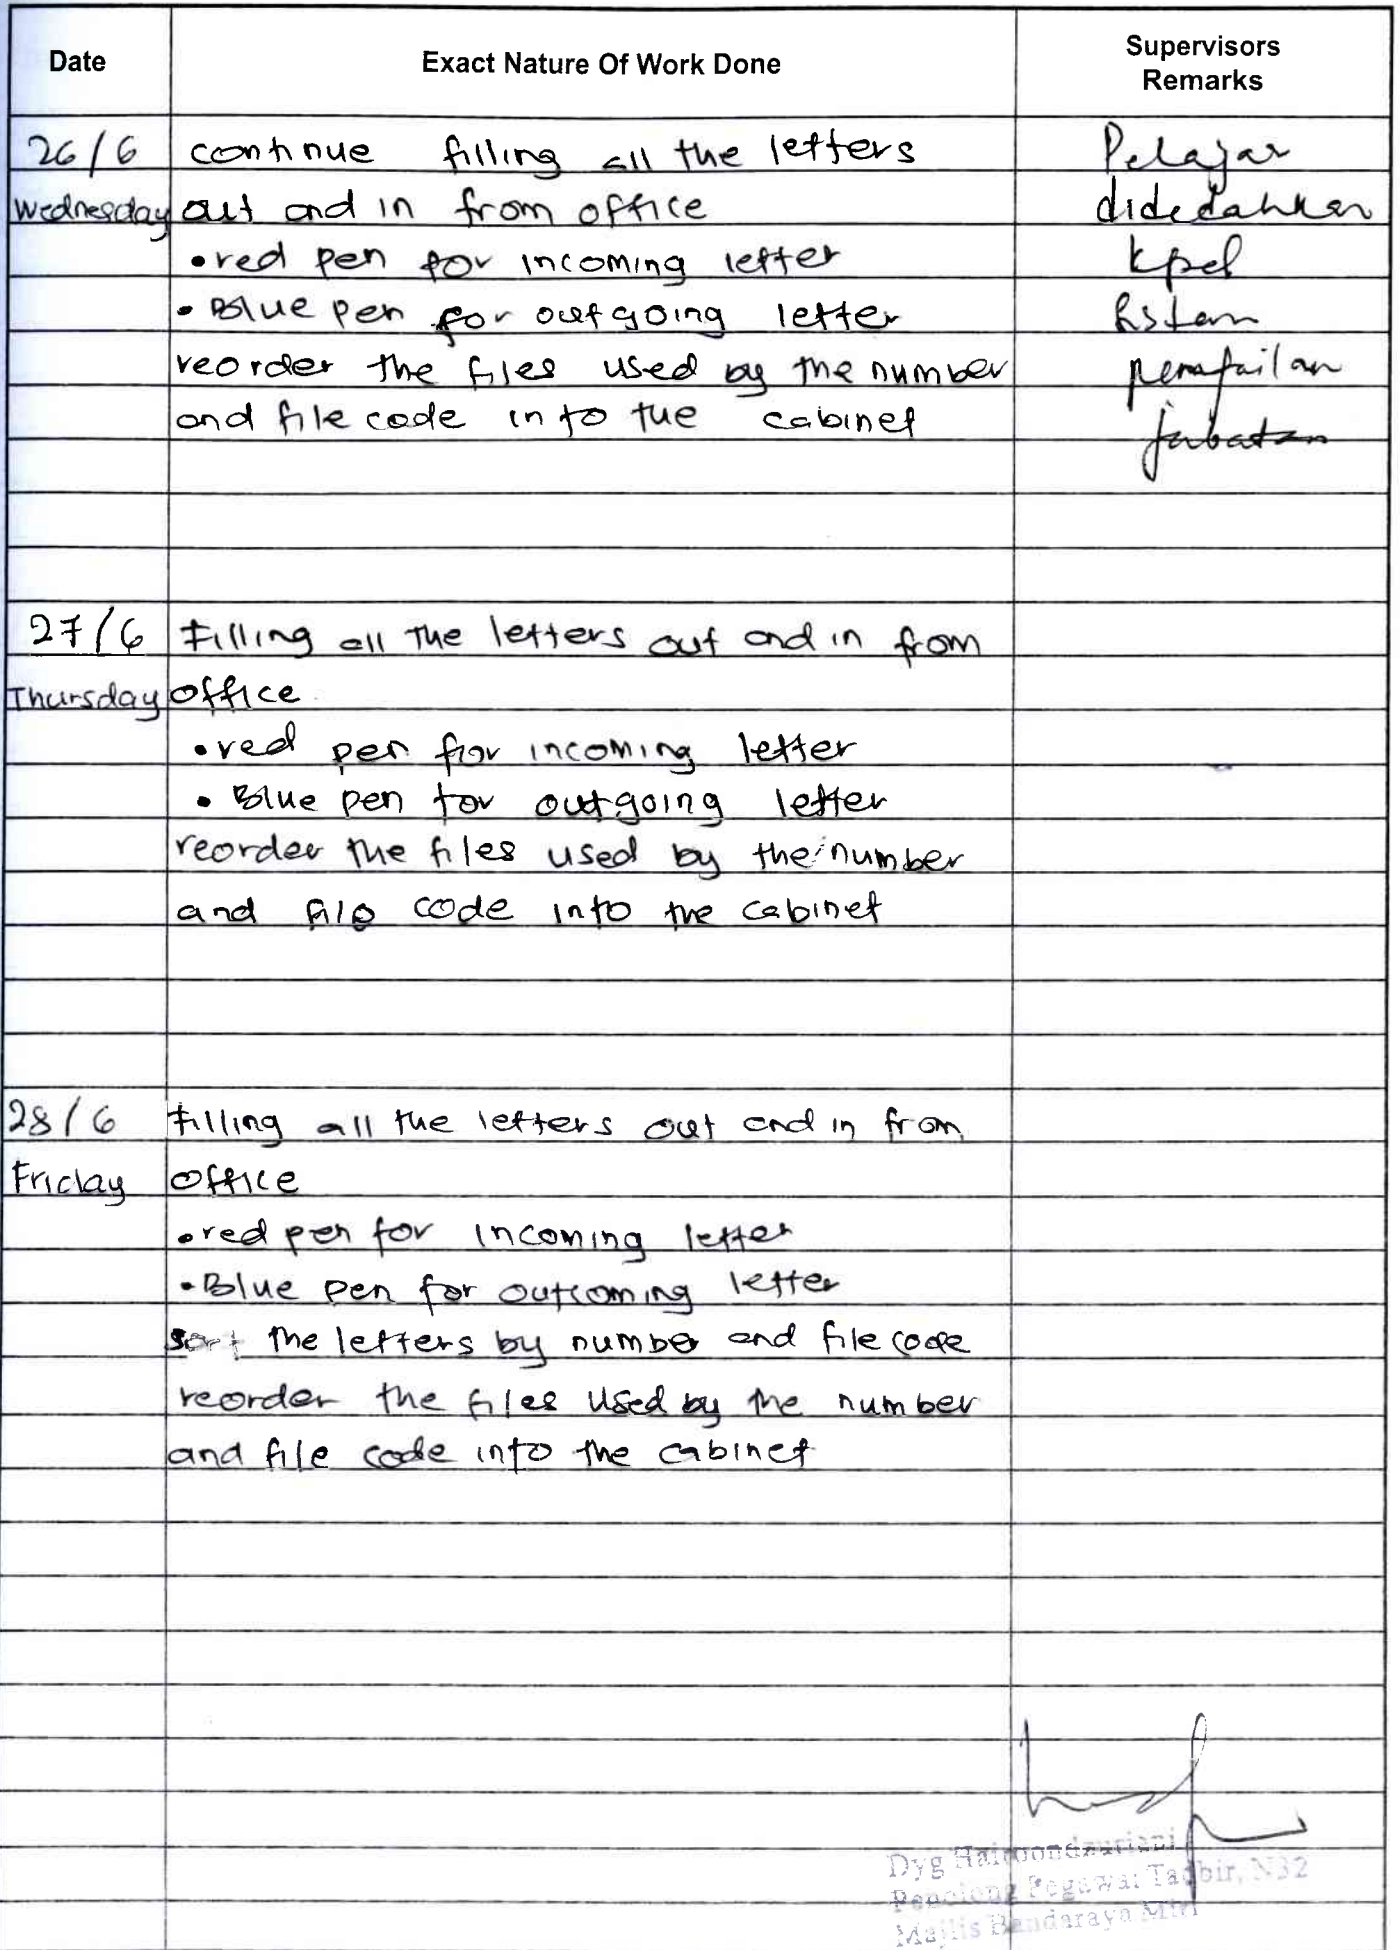 Date
Exact Nature Of Work Done
Supervisors
Remarks
26/6 continue filling all the letters
Wednesday out and in from office
• red pen for incoming letter
• Blue pen for outgoing letter
reorder the files used by the number
and file code into the cabinet
Pelajar
didedahkan
kpel
sistem
pemfailan
jabatan
27/6 Filling all the letters out and in from
Thursday office
• red pen for incoming letter
• Blue pen for outgoing letter
reorder the files used by the number
and file code into the cabinet
28/6 Filling all the letters out and in from
Friday office
• red pen for incoming letter
• Blue pen for outcoming letter
sort the letters by number and file code
reorder the files used by the number
and file code into the cabinet
Dyg
Penolong Pegawai Tadbir, N32
Majlis Bandaraya Miri